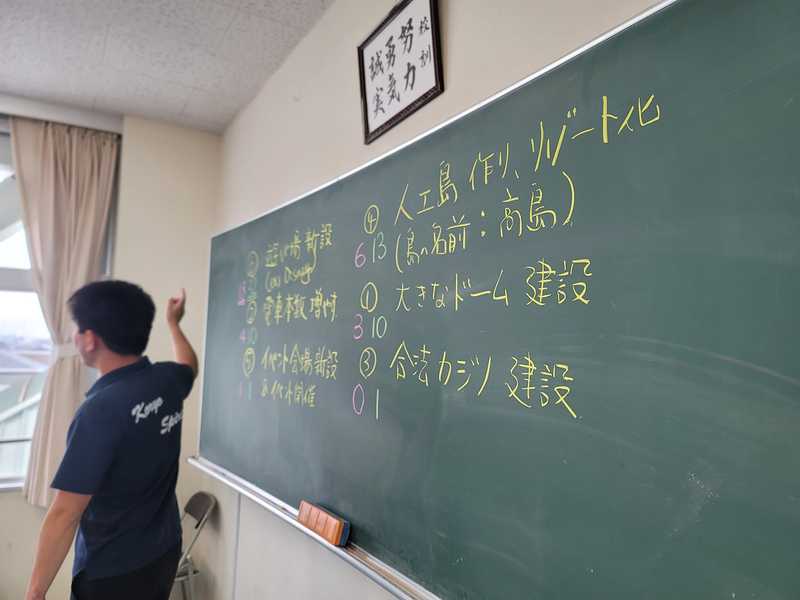 校訓
努力
勇気
誠実
④ 人工島作り、リゾート化
(島の名前：高島)
6 13
① 大きなドーム建設
3 10
③ 合法カジノ建設
0 1
遊び場新設
電車本数増やす
4 10
イベント会場新設
&イベント開催
1 1
Koryo